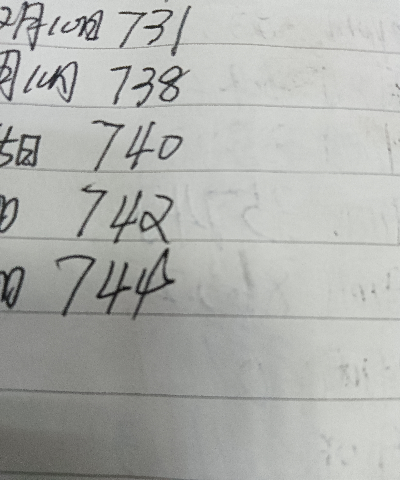 2月10日 731
月10日 738
5日 740
日 742
日 744